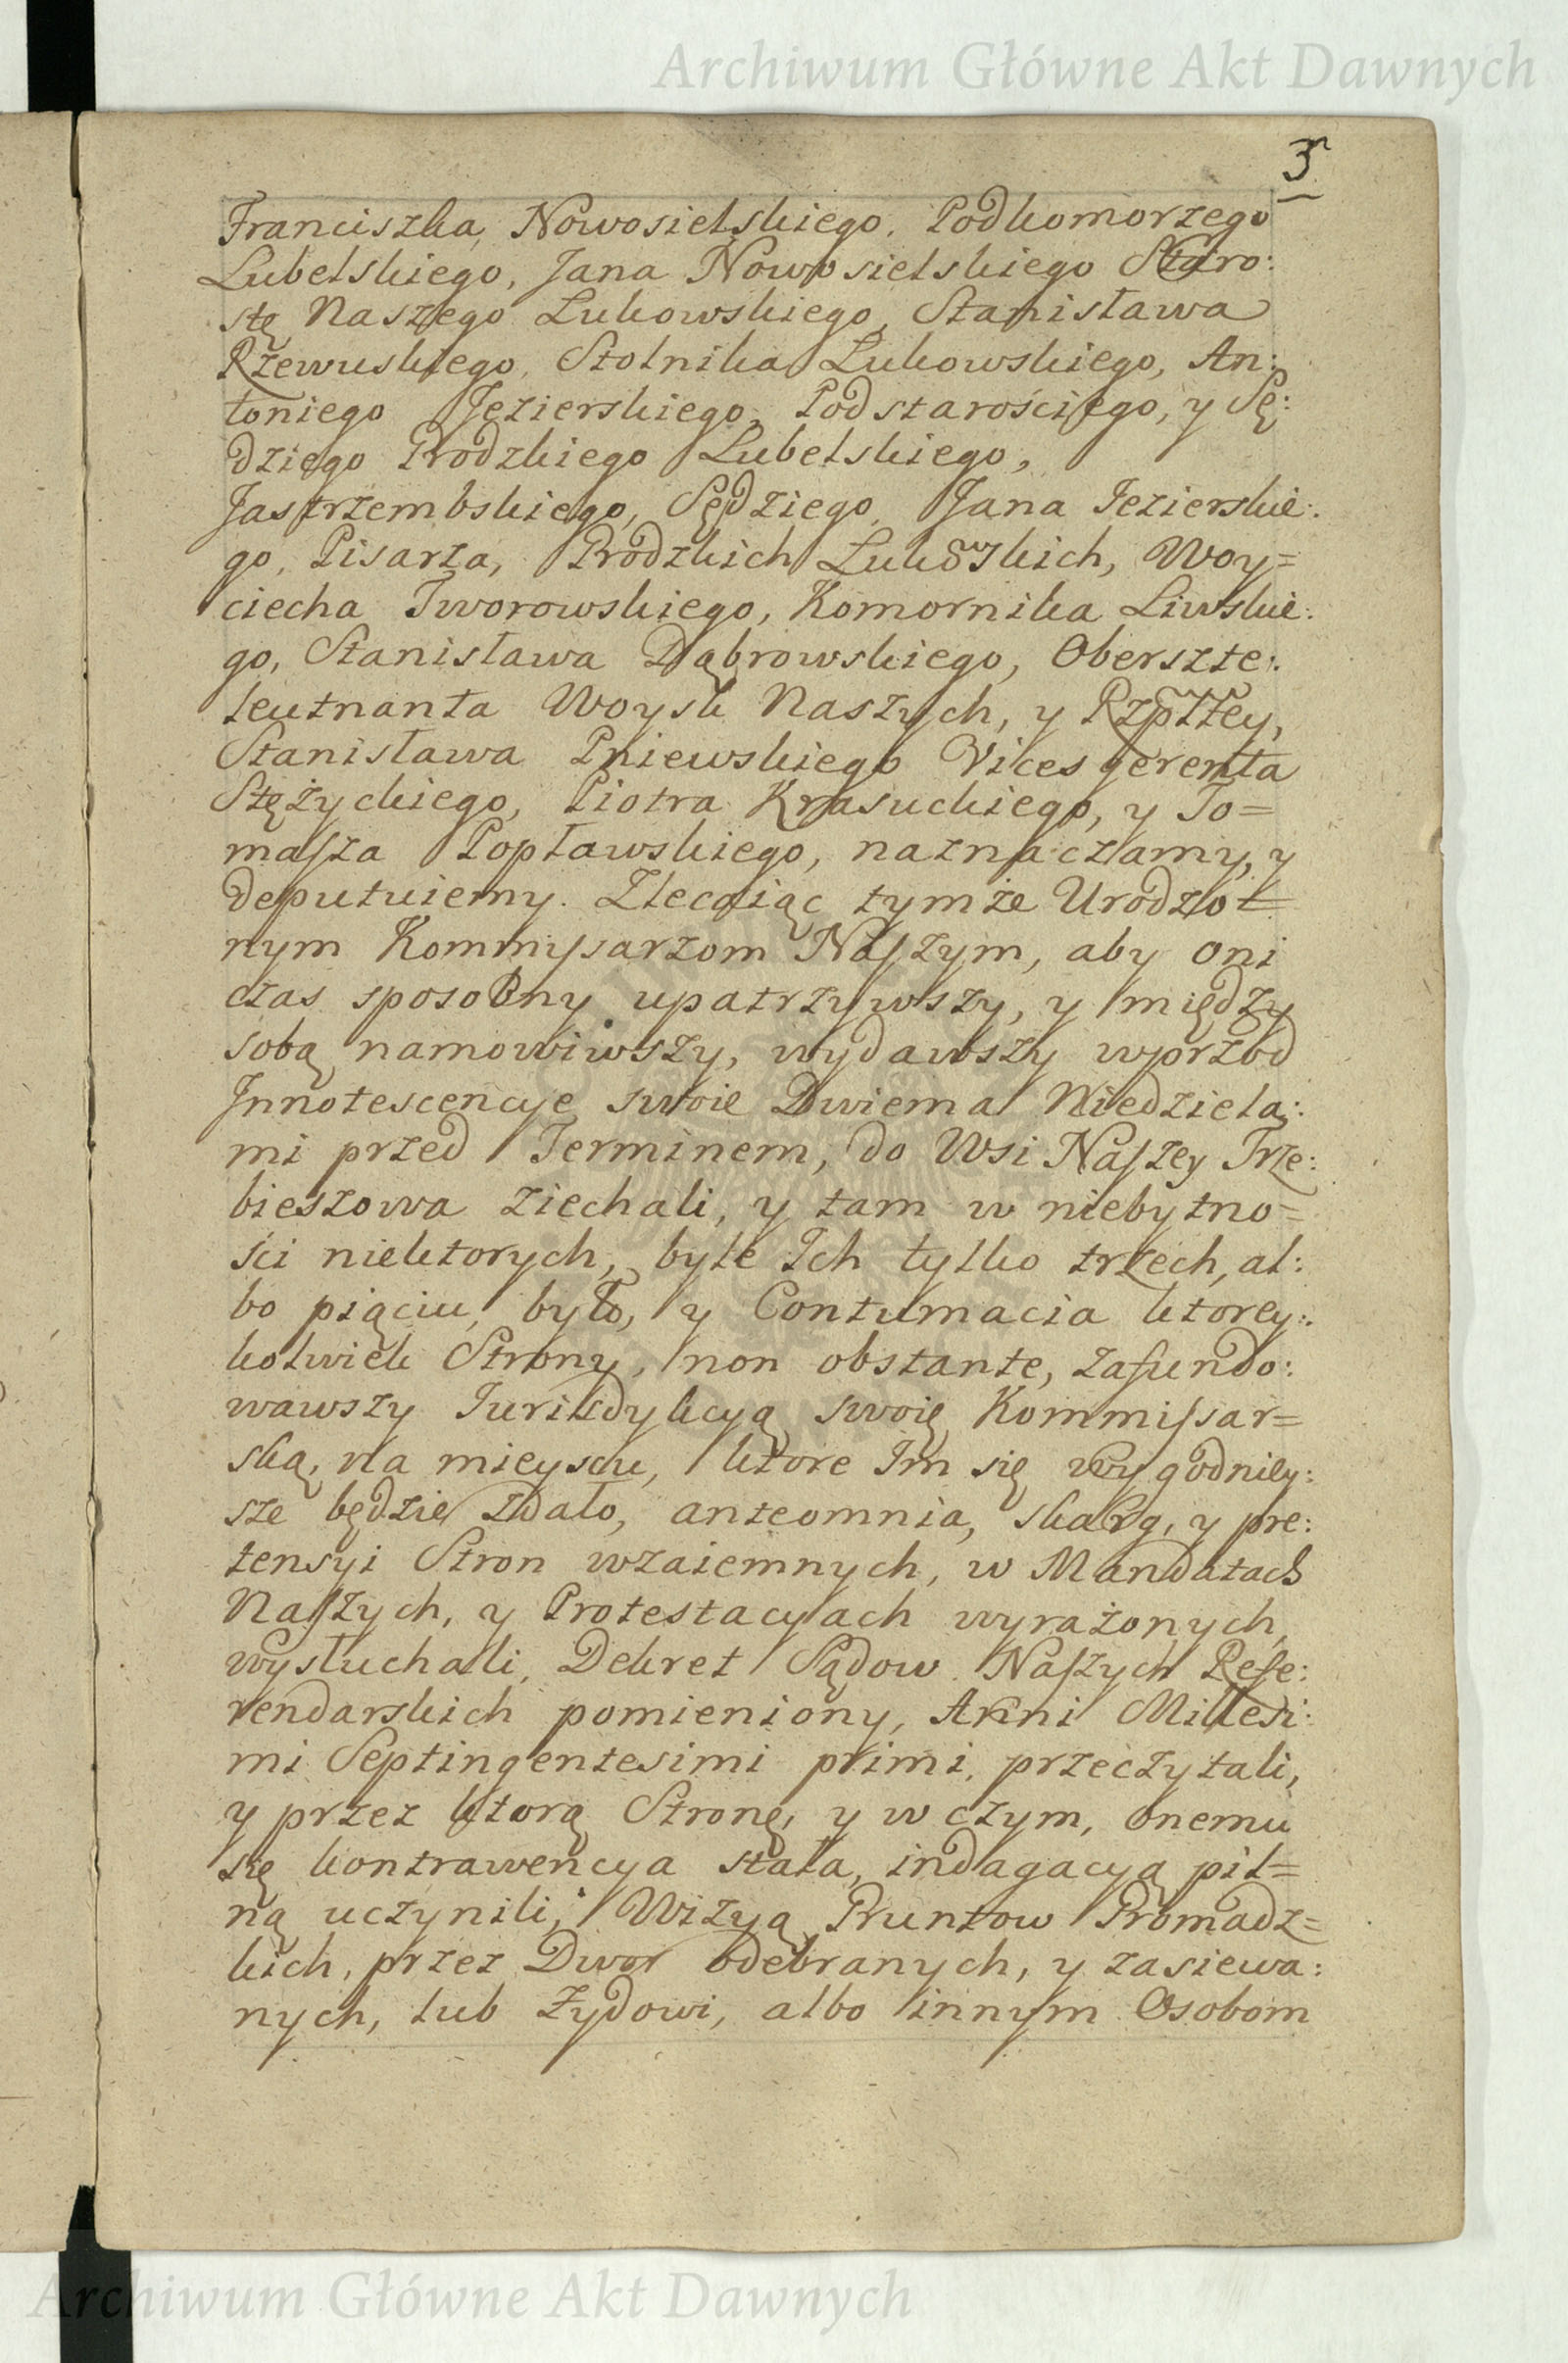 Archiwum Główne Akt Dawnych
3
Franciszka Nowosielskiego, Podkomorzego
Lubelskiego, Jana Nowosielskiego Staro:
stę Naszego Łukowskiego, Stanisława
Rzewuskiego, Stolnika Łukowskiego, An:
toniego Jezierskiego, Podstarościego, y Sę:
dziego Grodzkiego Lubelskiego,
Jastrzembskiego, Sędziego, Jana Jezierskie:
go, Pisarza, Grodzkich Łukowskich, Woy=
ciecha Tworowskiego, Komornika Liwskie:
go, Stanisława Dąbrowskiego, Oberszte:
leutnanta Woysk Naszych, y Rzpltey,
Stanisława Pniewskiego Vicesgerenta
Stężyckiego, Piotra Krasuckiego, y To=
maſza Popławskiego, naznaczamy, y
deputuiemy. Zlecaiąc tymże Urodzo=
nym Kommiſsarzom Naſzym, aby oni
czas sposobny upatrzywszy, y między
sobą namowiwszy, wydawszy wprzod
Innotescencye swoie Dwiema Niedziela:
mi przed Terminem, do Wsi Naſzey Trze:
bieszowa ziechali, y tam w niebytno=
ści niektorych, byle Ich tylko trzech, al:
bo pięciu, było, y Contumacia ktorey:
kolwiek Strony, non obstante, zafundo:
wawszy Iurisdykcyą swoię Kommiſsar=
ską, na mieyscu, ktore Im się wygodniey:
sze będzie zdało, anteomnia, skarg, y pre:
tensyi Stron wzaiemnych, w Mandatach
Naſzych, y Protestacyach wyrażonych,
wysłuchali, Dekret Sądow Naſzych Refe:
rendarskich pomieniony, Anni Millesi:
mi Septingentesimi primi, przeczytali,
y przez ktorą Stronę, y w czym, onemu
się kontrawencya stała, indagacyą pil=
ną uczynili, Wizyą Gruntow Gromadz=
kich, przez Dwor odebranych, y zasiewa:
nych, lub Żydowi, albo innym Osobom
Archiwum Główne Akt Dawnych